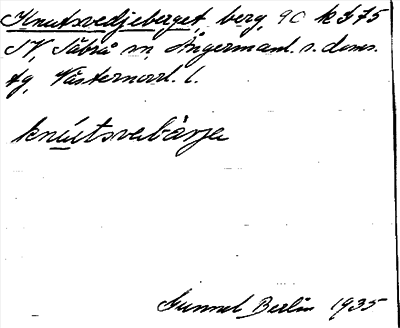 Knutsvedjeberget, berg, 90 k I 75
SV, Säbrå sn, Ångermanl. s. doms.
tg, Västernorrl. l.
knutsvebärje
Gunnel Berlin 1935